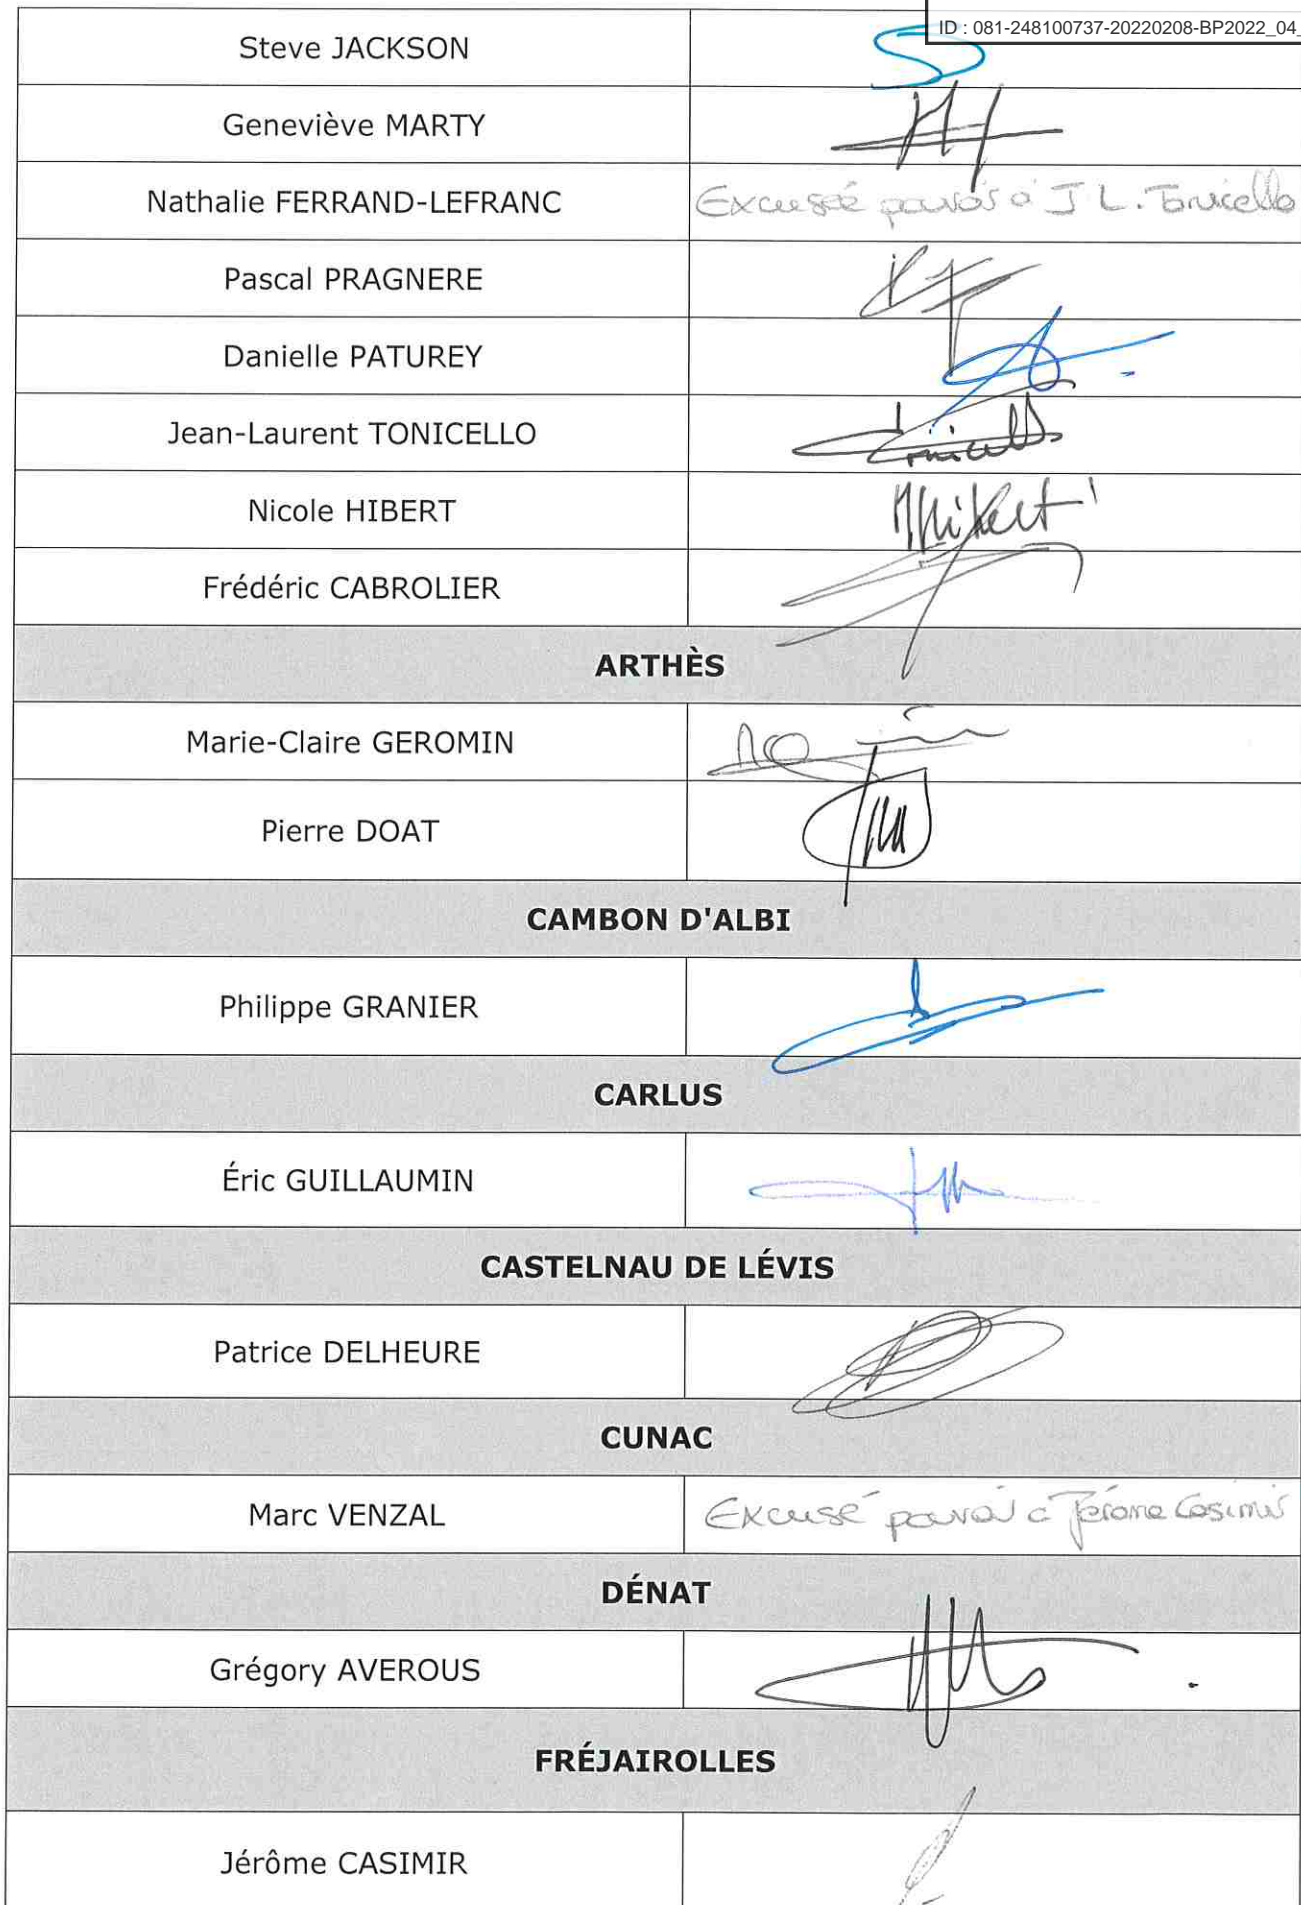 ID : 081-248100737-20220208-BP2022_04_
Steve JACKSON
Geneviève MARTY
Nathalie FERRAND-LEFRANC
Excusée pouvoir à J L. Tonicello
Pascal PRAGNERE
Danielle PATUREY
Jean-Laurent TONICELLO
Tonicello
Nicole HIBERT
NHibert
Frédéric CABROLIER
ARTHÈS
Marie-Claire GEROMIN
Pierre DOAT
CAMBON D'ALBI
Philippe GRANIER
CARLUS
Éric GUILLAUMIN
CASTELNAU DE LÉVIS
Patrice DELHEURE
CUNAC
Marc VENZAL
Excusé pouvoir à Jérôme Casimir
DÉNAT
Grégory AVEROUS
FRÉJAIROLLES
Jérôme CASIMIR